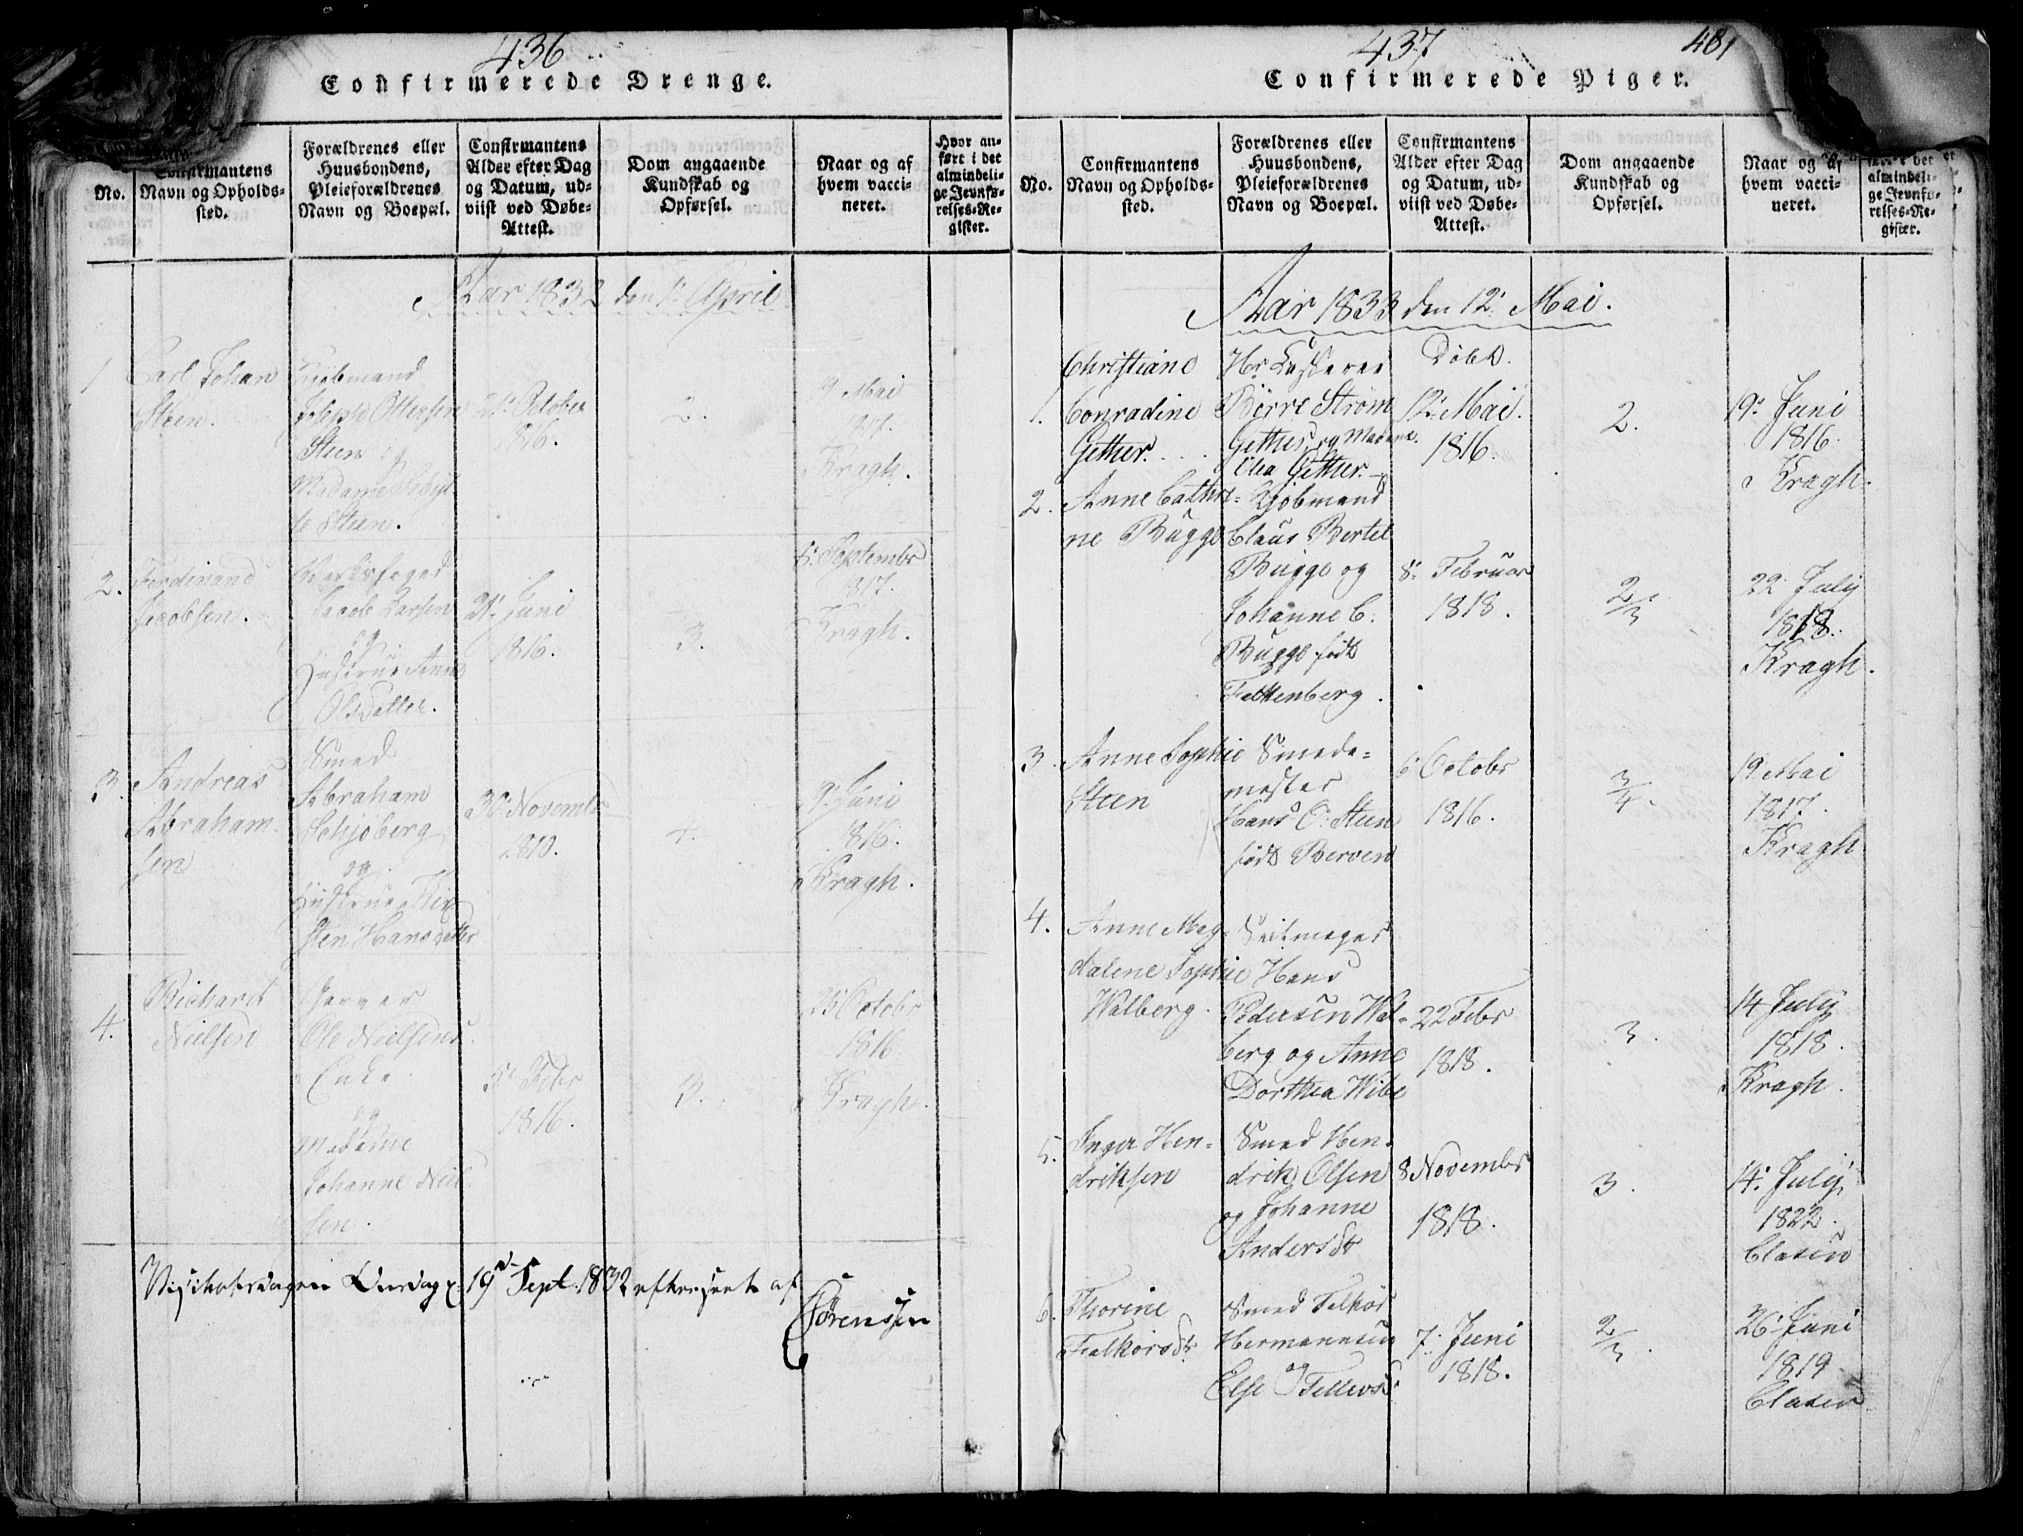 436
Confirmerede Drenge.
No.
Confirmantens
Navn og Opholds-
sted.
Forældrenes eller
Huusbondens,
Pleieforældrenes
Navn og Boepæl.
Confirmantens
Alder efter Dag
og Datum, ud-
viist ved Døbe-
Attest.
Dom angaaende
Kundskab og
Opførsel.
Naar og af
hvem vacci-
neret.
Hvor an-
ført i det
almindeli-
ge Jevnfø-
relses-Re-
gister.
Aar 1832 den 1. April
1
Carl Johan
Steen.
Kiøbmand
Ottersen
Steen og
Madame
Steen.
21. October
1816.
2.
9. Mai
1817.
Kragh.
2.
Ferdinand
Jacobsen.
Jacob Larsen
og
Hustrue Anne
Olsdatter.
21. Juni
1816.
3.
6. Septembr
1817.
Kragh.
3.
Andreas
Abraham-
sen
Smed
Abraham
Schjøberg
og
Hustrue Kir-
sten Hansdatter
30. Novembr
1810.
4.
9. Juni
1816.
Kragh.
4.
Richard
Nielsen
Garver
Ole Nielsens
Enke
og
Madame
Johanne Niel-
sen.
Febr
1816.
3.
25 Octobr
1816
Kragh.
Visitatsdagen Onsdag 19d Sept. 1832 efterseet af
Sørenssen
437
481
Confirmerede Piger.
No.
Confirmantens
Navn og Opholds-
sted.
Forældrenes eller
Huusbondens,
Pleieforældrenes
Navn og Boepæl.
Confirmantens
Alder efter Dag
og Datum, ud-
viist ved Døbe-
Attest.
Dom angaaende
Kundskab og
Opførsel.
Naar og af
hvem vacci-
neret.
ført i det
almindeli-
ge Jevnfø-
relses-Re-
gister.
Aar 1833 den 12. Mai.
1.
Christiane
Conradine
Gether.
Hr.
Børre Strøm
Gether og Madame
Gether.
Døbt.
12. Mai.
1816.
2.
19. Juni
1816.
Kragh.
2.
Anne Cathri-
ne Bugge
Kjøbmand
Claus Bertel
Bugge og
Johanne C.
Bugge født
Falkenberg.
8. Februar
1818.
2/3.
22. July
1818.
Kragh.
3.
Anne Sophie
Steen
Smede-
mester
Hans O. Steen
født Berven
6. Octobr
1816.
3/4.
19. Mai
1817.
Kragh
4.
Anne Mag-
dalene Sophie
Walberg.
Seilmager
Hans
Pedersen Wal-
berg og Anne
Dorthea Wibe
22 Febr
1818.
3.
14 July
1818.
Kragh.
5.
Inger Hen-
driksen
Smed Hen-
drik Olsen
og Johanne
Andersdtr
8 Novembr
1818.
3.
14. July.
1822.
Clasen
6.
Thorine
Falkorsdtr.
Smed Falkor
Hermannsen
og
Else
7. Juni
1818.
2/3.
26. Juni
1819
Clasen